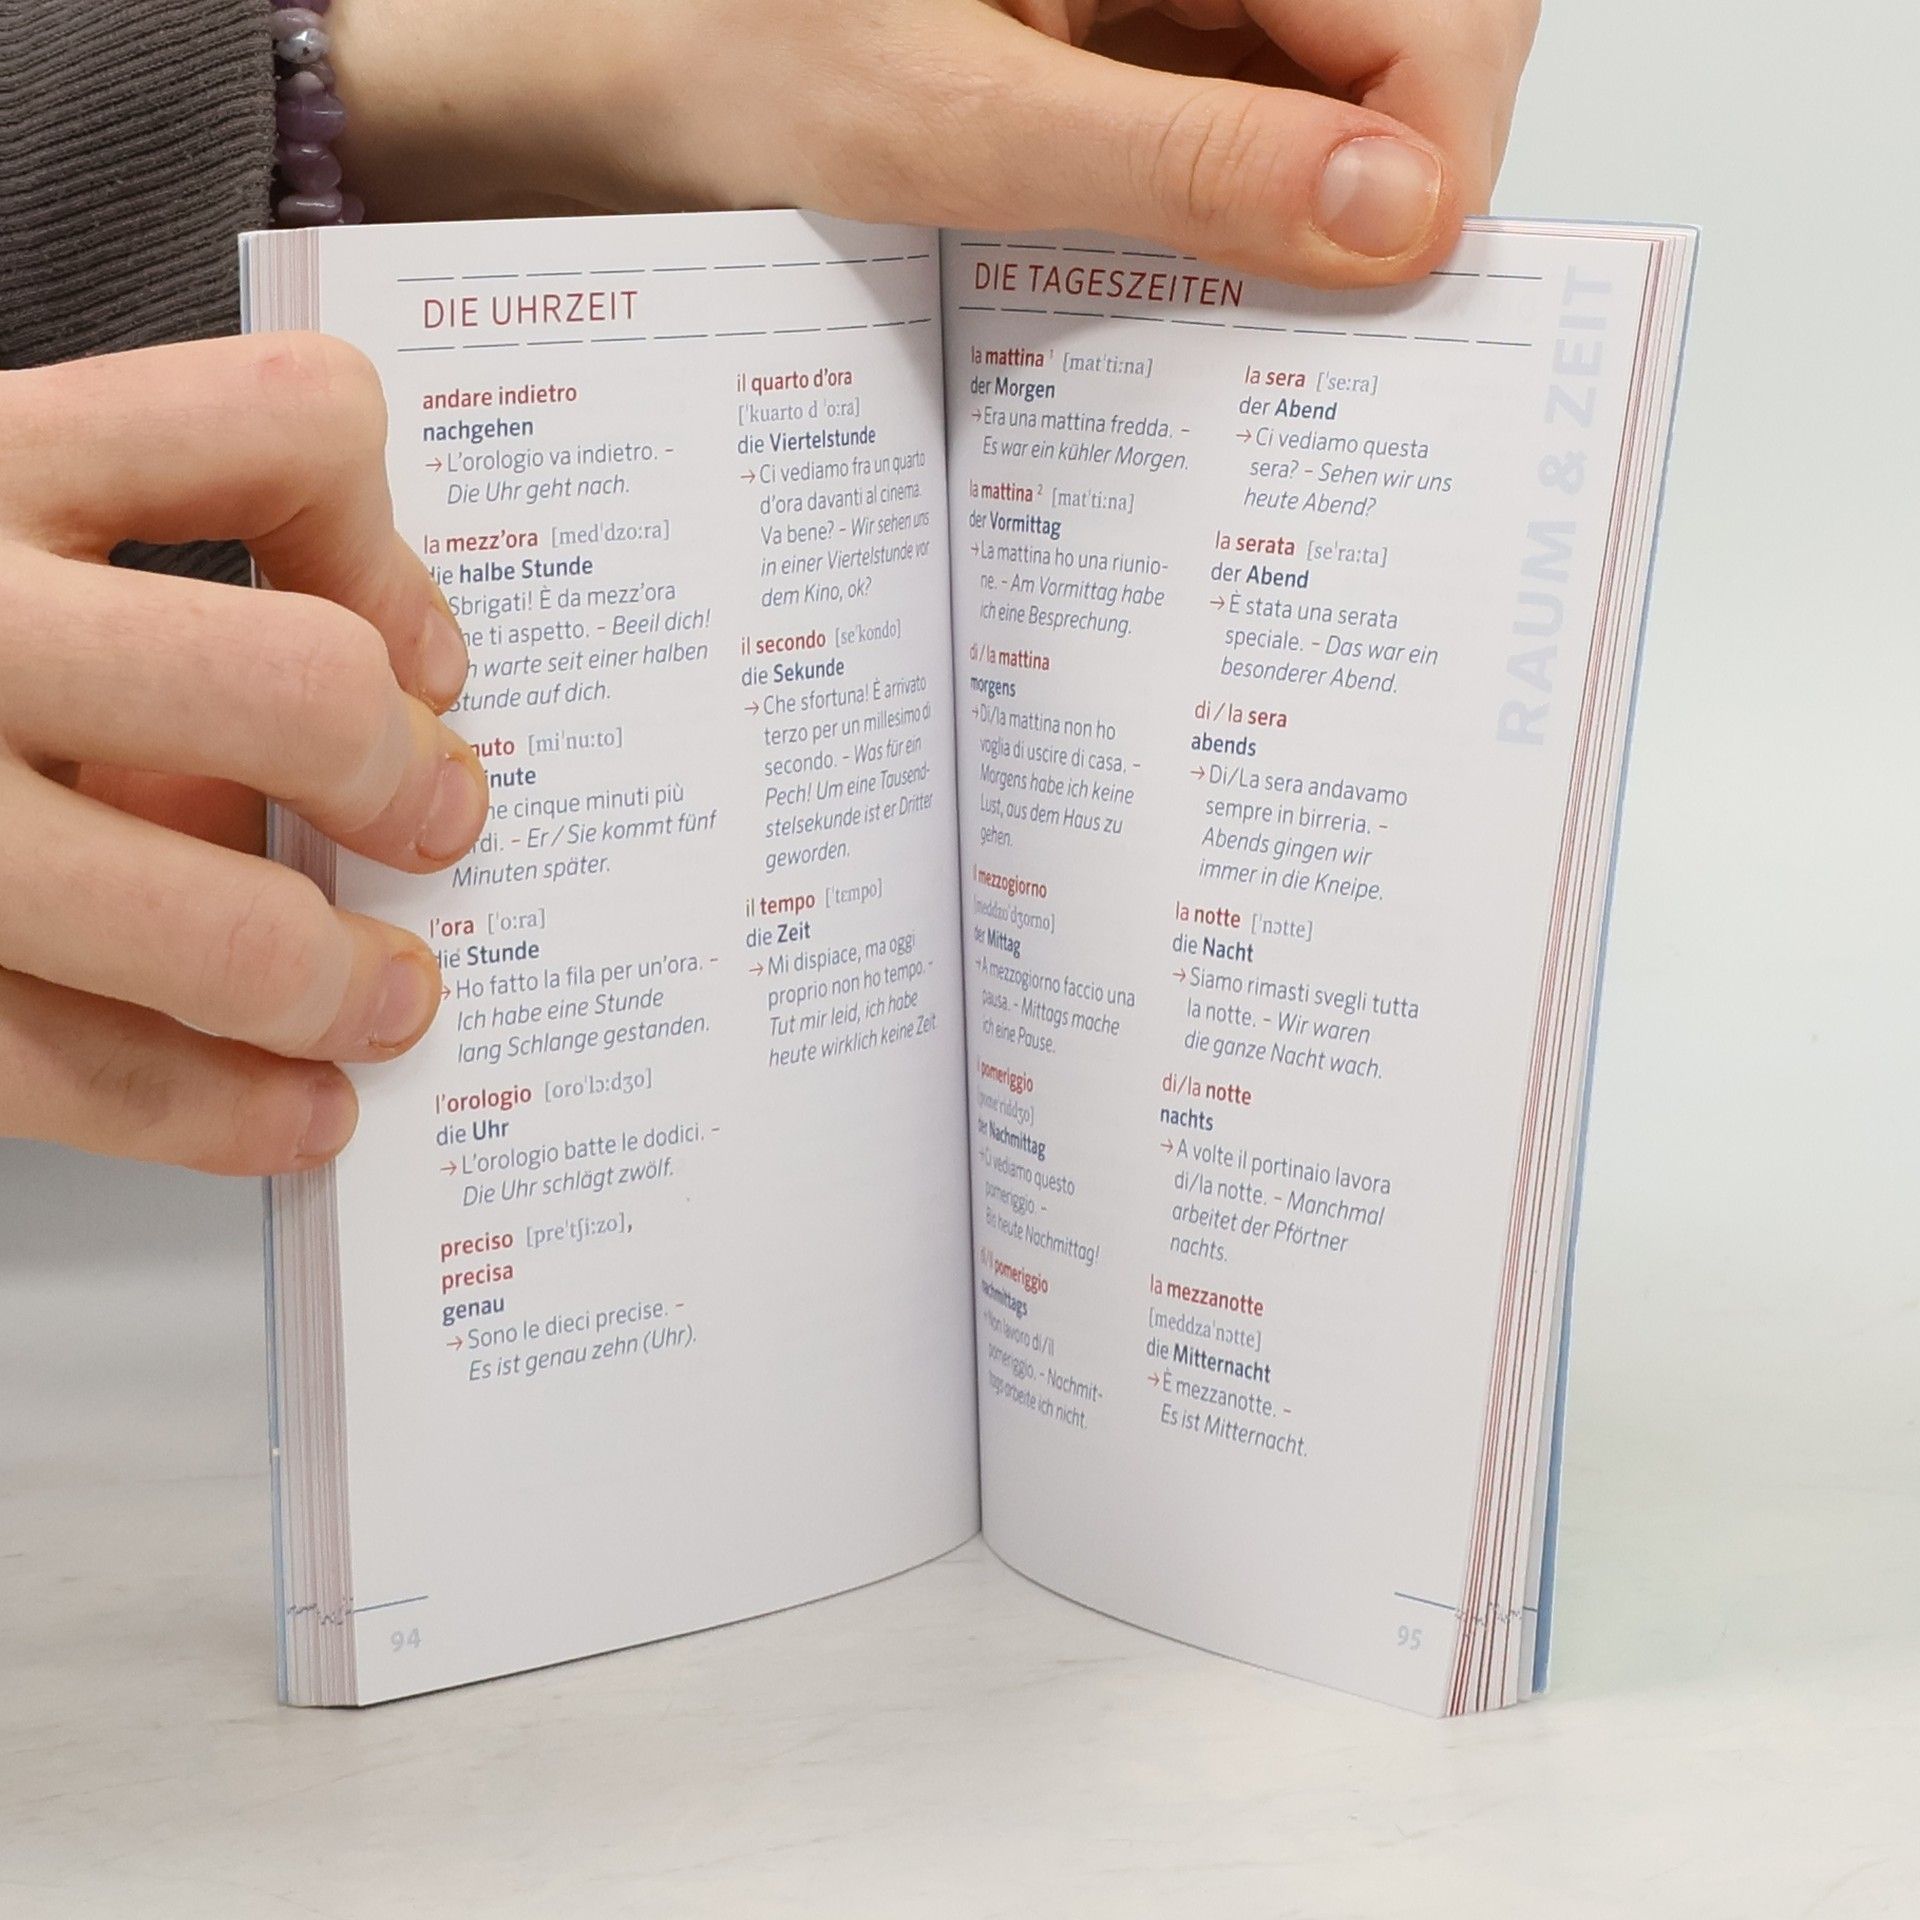 DIE UHRZEIT
andare indietro
nachgehen
→ L'orologio va indietro. –
Die Uhr geht nach.
la mezz'ora [medˈdzoːra]
die halbe Stunde
Sbrigati! È da mezz'ora
ti aspetto. – Beeil dich!
warte seit einer halben
Stunde auf dich.
[miˈnuːto]
cinque minuti più
– Er / Sie kommt fünf
Minuten später.
l'ora [ˈoːra]
die Stunde
→ Ho fatto la fila per un'ora. –
Ich habe eine Stunde
lang Schlange gestanden.
l'orologio [oroˈlɔːdʒo]
die Uhr
→ L'orologio batte le dodici. –
Die Uhr schlägt zwölf.
preciso [preˈtʃiːzo],
precisa
genau
→ Sono le dieci precise. –
Es ist genau zehn (Uhr).
il quarto d'ora
[ˈkuarto d ˈoːra]
die Viertelstunde
→ Ci vediamo fra un quarto
d'ora davanti al cinema.
Va bene? – Wir sehen uns
in einer Viertelstunde vor
dem Kino, ok?
il secondo [seˈkondo]
die Sekunde
→ Che sfortuna! È arrivato
terzo per un millesimo di
secondo. – Was für ein
Pech! Um eine Tausend-
stelsekunde ist er Dritter
geworden.
il tempo [ˈtɛmpo]
die Zeit
→ Mi dispiace, ma oggi
proprio non ho tempo. –
Tut mir leid, ich habe
heute wirklich keine Zeit.
94
DIE TAGESZEITEN
la mattina ¹ [matˈtiːna]
der Morgen
→ Era una mattina fredda. –
Es war ein kühler Morgen.
la mattina ² [matˈtiːna]
der Vormittag
→ La mattina ho una riunio-
ne. – Am Vormittag habe
ich eine Besprechung.
di / la mattina
morgens
→ Di/la mattina non ho
voglia di uscire di casa. –
Morgens habe ich keine
Lust, aus dem Haus zu
gehen.
il mezzogiorno
[meddzoˈdʒorno]
der Mittag
→ A mezzogiorno faccio una
pausa. – Mittags mache
ich eine Pause.
il pomeriggio
[pomeˈriddʒo]
der Nachmittag
→ Ci vediamo questo
pomeriggio. –
Bis heute Nachmittag!
di/il pomeriggio
nachmittags
→ Non lavoro di/il
pomeriggio. – Nachmit-
tags arbeite ich nicht.
la sera [ˈseːra]
der Abend
→ Ci vediamo questa
sera? – Sehen wir uns
heute Abend?
la serata [seˈraːta]
der Abend
→ È stata una serata
speciale. – Das war ein
besonderer Abend.
di / la sera
abends
→ Di/La sera andavamo
sempre in birreria. –
Abends gingen wir
immer in die Kneipe.
la notte [ˈnɔtte]
die Nacht
→ Siamo rimasti svegli tutta
la notte. – Wir waren
die ganze Nacht wach.
di/la notte
nachts
→ A volte il portinaio lavora
di/la notte. – Manchmal
arbeitet der Pförtner
nachts.
la mezzanotte
[meddzaˈnɔtte]
die Mitternacht
→ È mezzanotte. –
Es ist Mitternacht.
RAUM & ZEIT
95